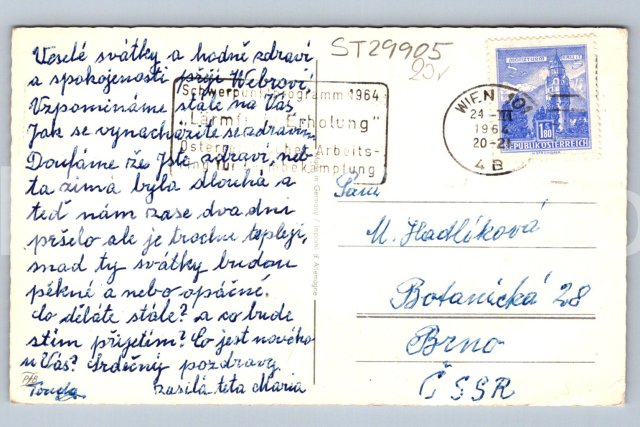 Veselé svátky a hodně zdraví
a spokojenosti přejí Webrovi
Vzpomínáme stále na Vás
Jak se vynacházíte se zdravím.
Doufáme že jste zdraví, neb
ta zima byla dlouhá a
teď nám zase dva dni
pršelo ale je trochu tepleji,
snad ty svátky budou
pěkné a nebo opačné.
Co děláte stále? a co bude
s tím přijetím? Co jest nového
u Vás? Srdečný pozdravy
zasílá teta Maria
ST29905
20,-
Schwerpunktprogramm 1964
"Lärmfreie Erholung"
Österreichischer Arbeits-
ring für Lärmbekämpfung
WIEN 101
24 -III
1964
20-21
4B
1.80
REPUBLIK ÖSTERREICH
Paní
M. Hadlíková
Botanická 28
Brno
ČSSR